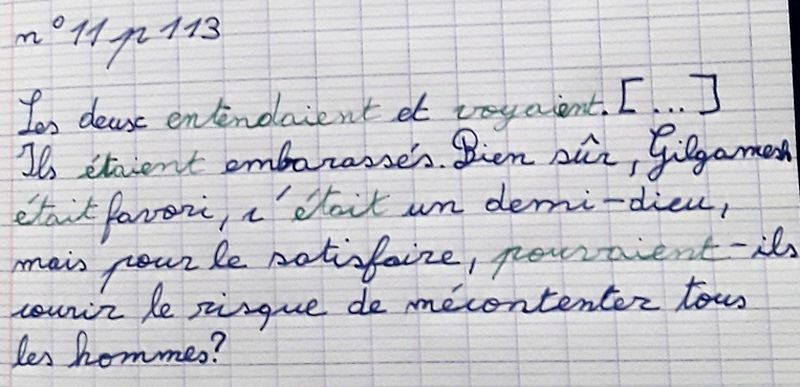 n° 11 p 113
Les deux entendaient et voyaient. [...]
Ils étaient embarassés. Bien sûr, Gilgamesh
était favori, c'était un demi-dieu,
mais pour le satisfaire, pouvaient-ils
courir le risque de mécontenter tous
les hommes?